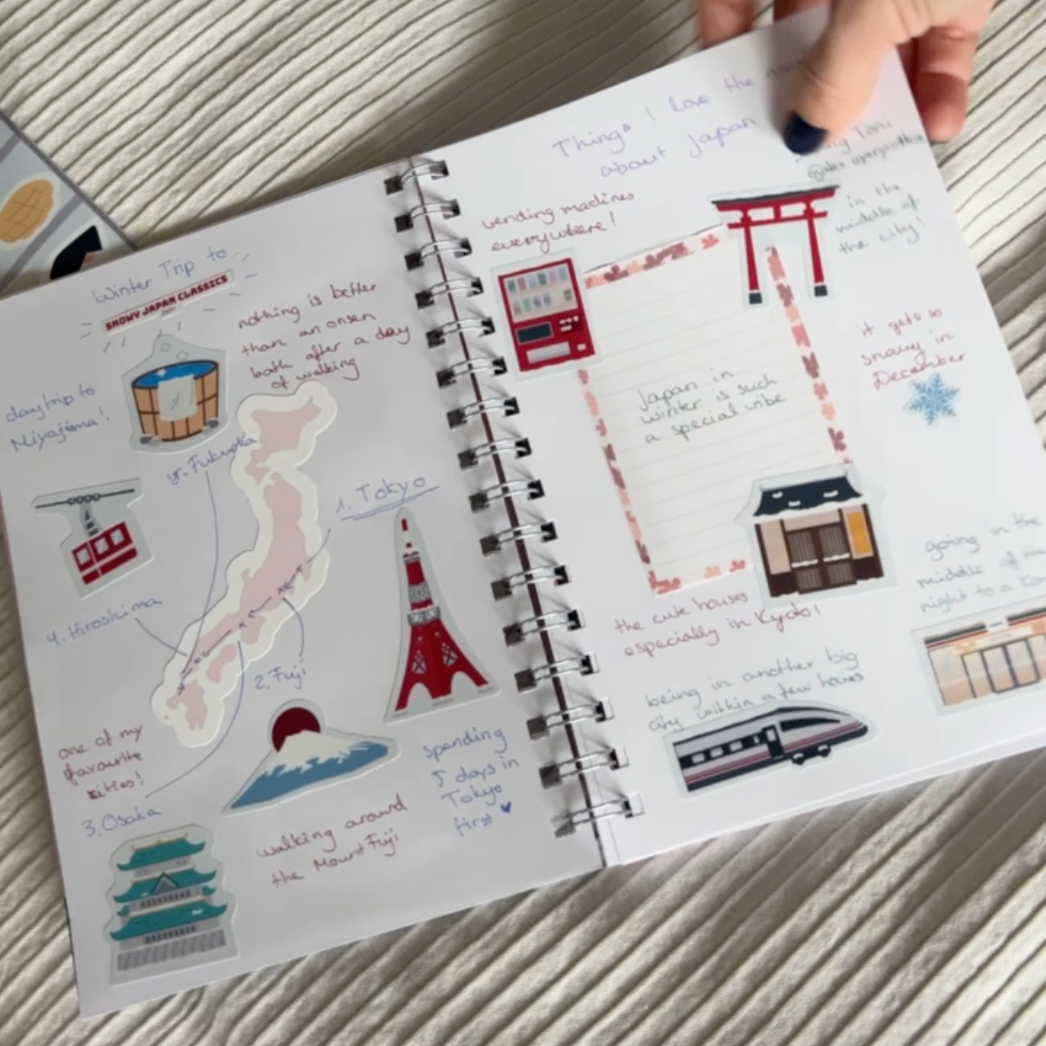 Winter Trip to
SNOWY JAPAN CLASSICS
nothing is better
than an onsen
bath after a day
of walking
daytrip to
Miyajima!
5. Fukuoka
1. Tokyo
4. Hiroshima
2. Fuji
one of my
favourite
cities!
3. Osaka
spending
5 days in
Tokyo
first
walking around
the Mount Fuji
Things I love the
about Japan
vending machines
everywhere!
Torii
in the
middle of
the city!
it gets so
snowy in
December
Japan in
winter is such
a special vibe
the cute houses
especially in Kyoto!
going in the
middle of the
night to a
being in another big
city within a few hours